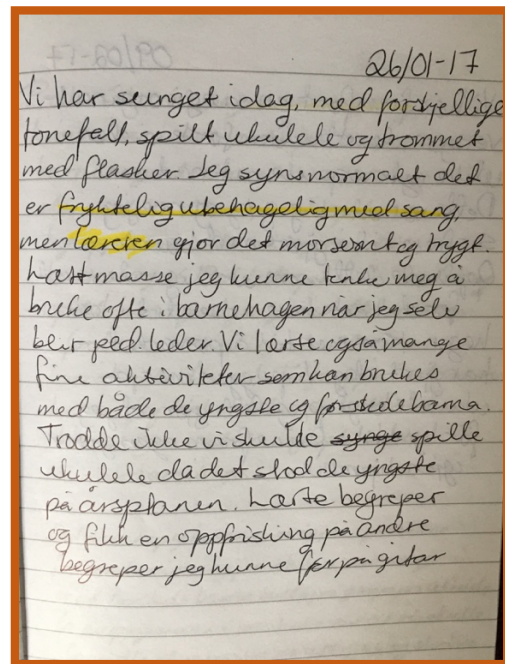 26/01-17
Vi har sunget idag, med forskjellige
tonefall, spilt ukulele og trommet
med flasker Jeg syns normalt det
er fryktelig ubehagelig med sang,
men læreren gjør det morsomt og trygt.
Lært masse jeg kunne tenke meg å
bruke ofte i barnehagen når jeg selv
blir ped. leder. Vi lærte også mange
fine aktiviteter som kan brukes
med både de yngste og førskolebarna.
Trodde ikke vi skulle synge spille
ukulele da det stod de yngste
på årsplanen. Lærte begreper
og fikk en oppfrisking på andre
begreper jeg kunne før på gitar